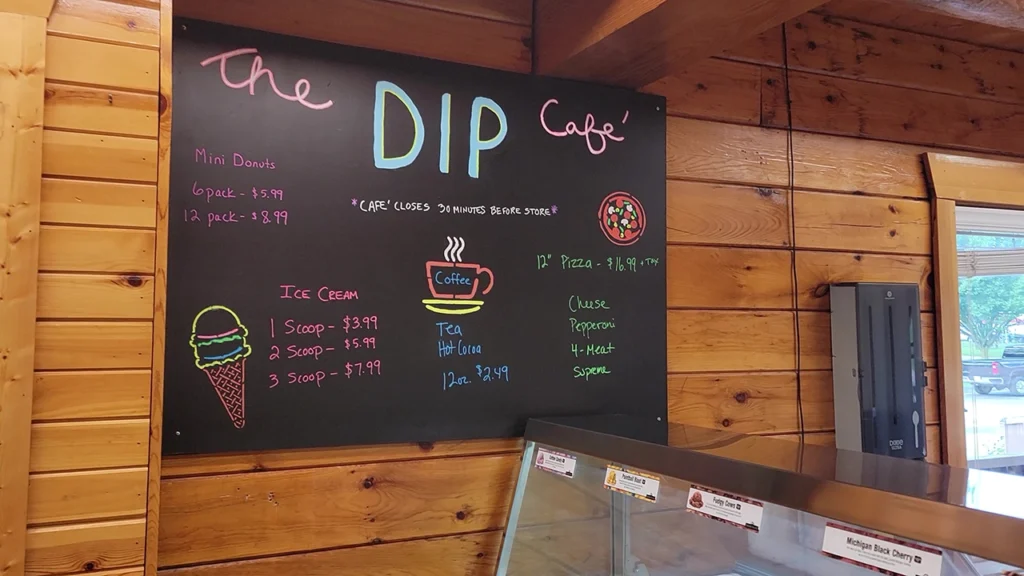 The DIP Café
Mini Donuts
6 pack - $5.99
12 pack - $8.99
*CAFE' CLOSES 30 MINUTES BEFORE STORE*
12" Pizza - $16.99 + Tax
Cheese
Pepperoni
4-Meat
Supreme
Coffee
Tea
Hot Cocoa
12oz. $2.49
ICE CREAM
1 Scoop - $3.99
2 Scoop - $5.99
3 Scoop - $7.99
Michigan Black Cherry